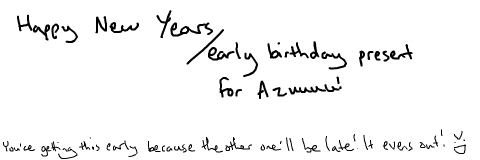 Happy New Years
/early birthday present
for Azuuuu!
You're getting this early because the other one'll be late! It evens out! :D